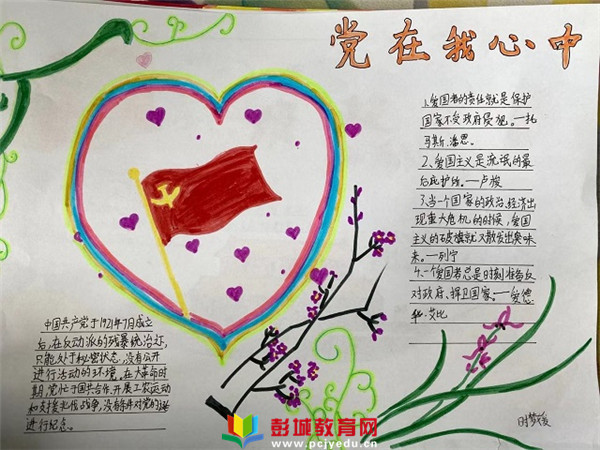 党在我心中
1、爱国者的责任就是保护
国家不受政府侵犯。—托
马斯·潘恩。
2、爱国主义是流氓的最
后庇护所。—卢梭
3、当一个国家的政治、经济出
现重大危机的时候，爱国
主义的破旗就又散发出臭味
来。—列宁
4、一个爱国者总是时刻准备反
对政府、捍卫国家。—爱德
华·艾比
中国共产党于1921年7月成立
后，在反动派的残暴统治过，
只能处于秘密状态，没有公开
进行活动的环境。在大革命时
期，党忙于国共合作、开展工农运动
和支援北伐战争，没有条件对党的诞
进行纪念。
彭城教育网
www.pcjyedu.cn